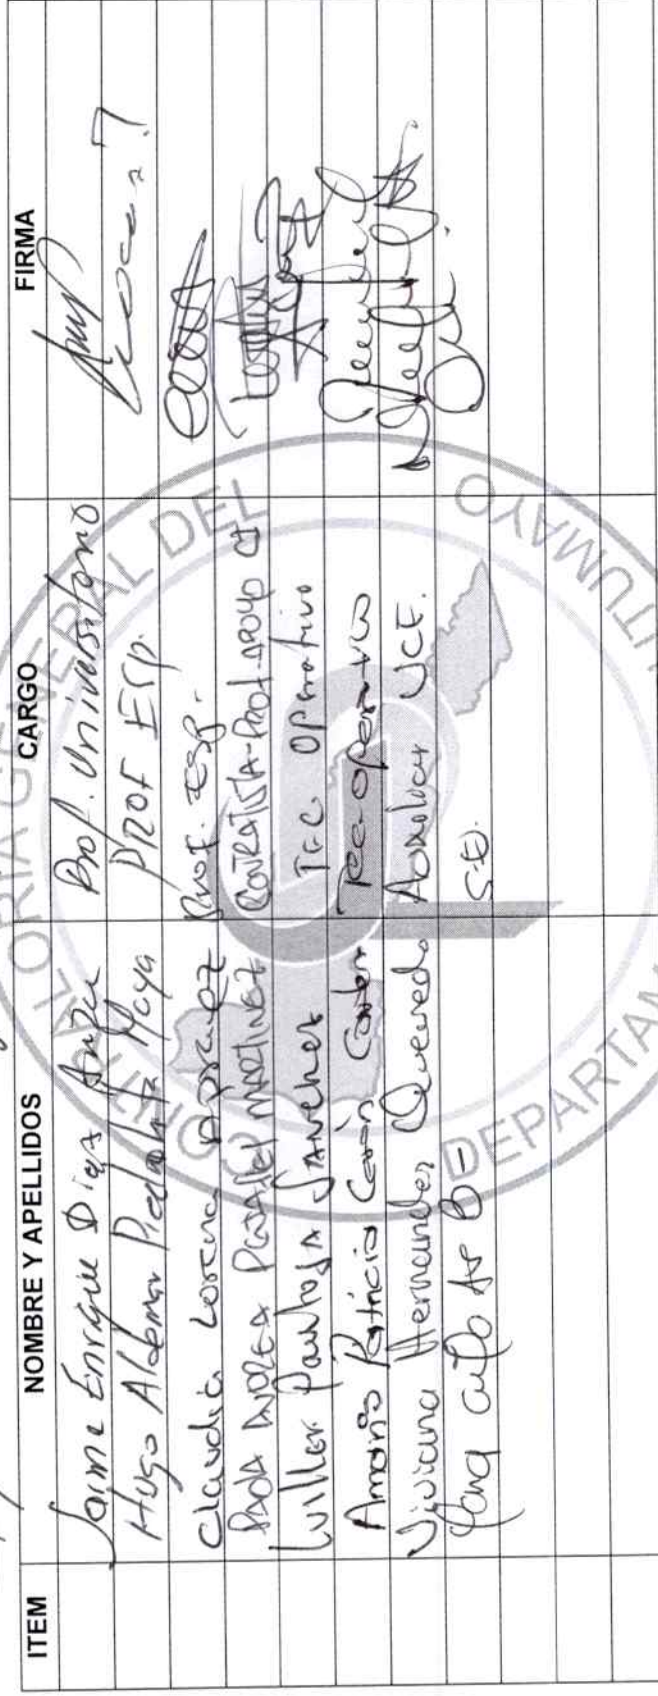 ITEM NOMBRE Y APELLIDOS CARGO FIRMA
Jaime Enrique Diaz Prof. Universitario
Hugo Aldemar Piedrahita Moya PROF ESP.
Claudia Lorena Prof. Esp.
PAOLA ANDREA MARTINEZ CONTRATISTA-Prof. APOYO CI
Willer Pantoja SANCHEZ TEC OPERATIVO
Patricia Cerón Tec-operativo
Viviana Hernandez Quevedo UCE.
CONTRALORIA GENERAL DEL
DEPARTAM UTUMAYO